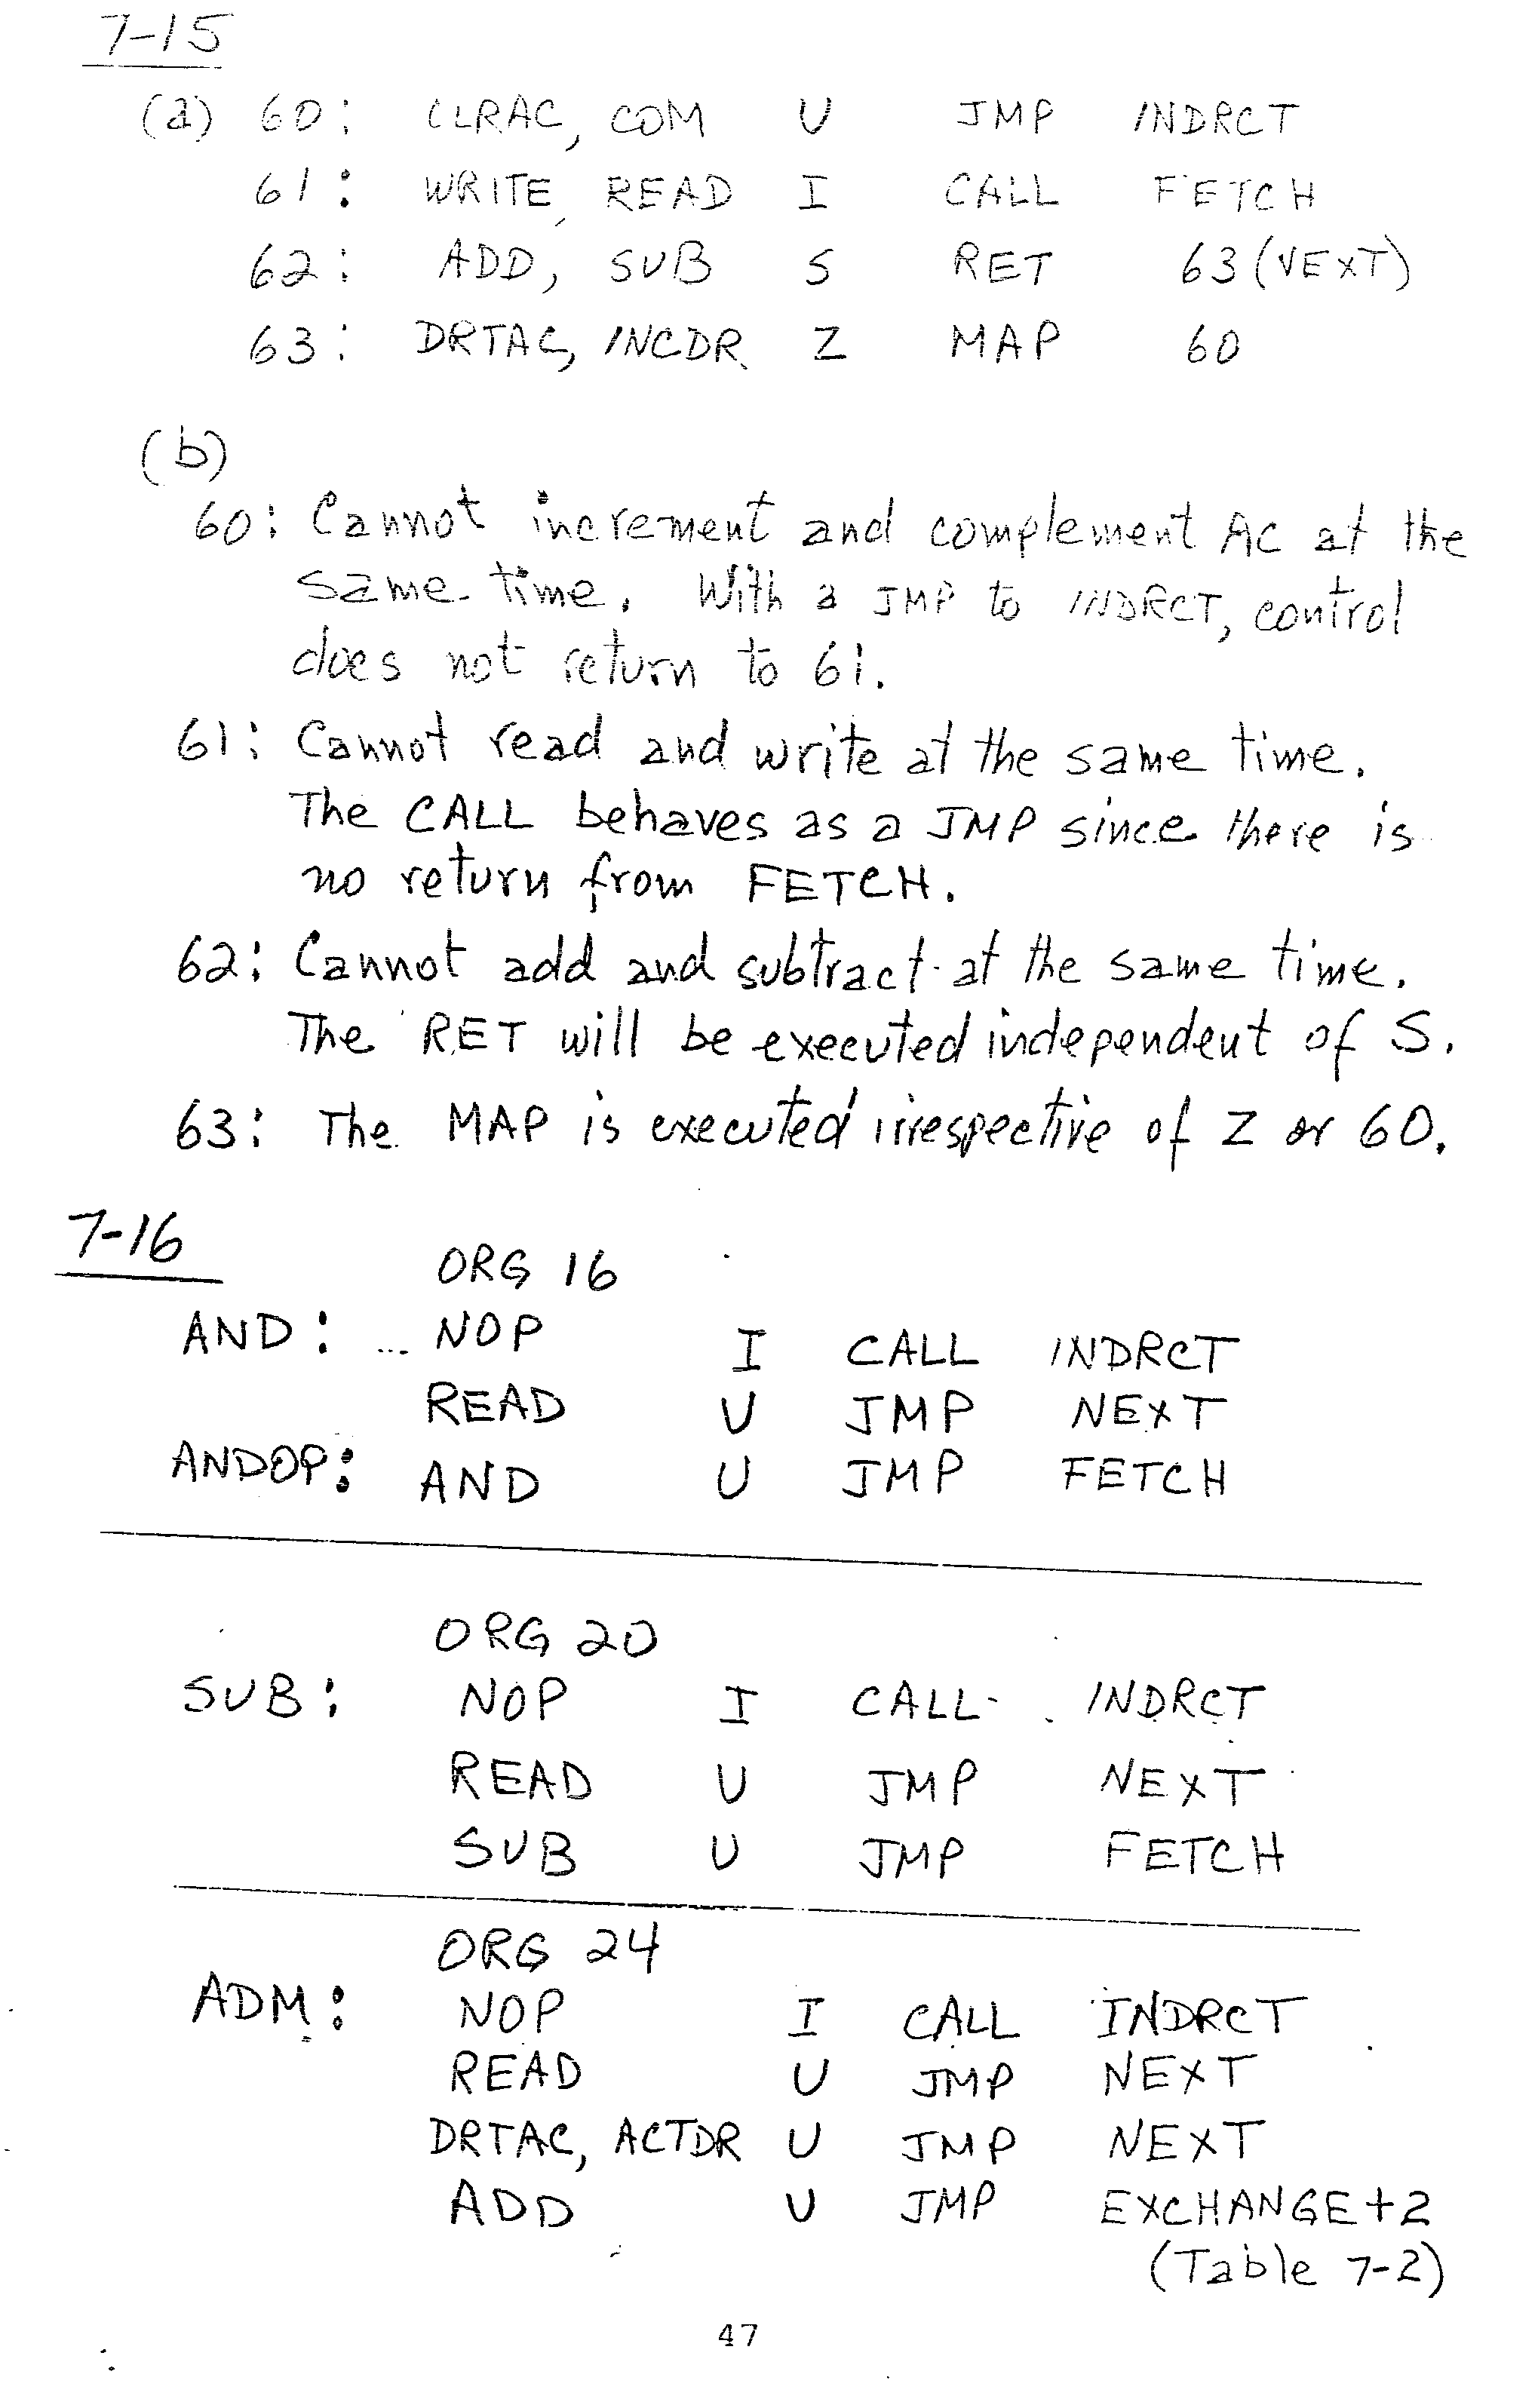 7-15
(a) 60: CLRAC, COM U JMP INDRCT
61: WRITE, READ I CALL FETCH
62: ADD, SUB S RET 63 (NEXT)
63: DRTAC, INCDR Z MAP 60
(b)
60: Cannot increment and complement AC at the
same time. With a JMP to INDRCT, control
does not return to 61.
61: Cannot read and write at the same time.
The CALL behaves as a JMP since there is
no return from FETCH.
62: Cannot add and subtract at the same time.
The RET will be executed independent of S.
63: The MAP is executed irrespective of Z or 60.
7-16
ORG 16
AND: NOP I CALL INDRCT
READ U JMP NEXT
ANDOP: AND U JMP FETCH
ORG 20
SUB: NOP I CALL INDRCT
READ U JMP NEXT
SUB U JMP FETCH
ORG 24
ADM: NOP I CALL INDRCT
READ U JMP NEXT
DRTAC, ACTDR U JMP NEXT
ADD U JMP EXCHANGE+2
(Table 7-2)
47